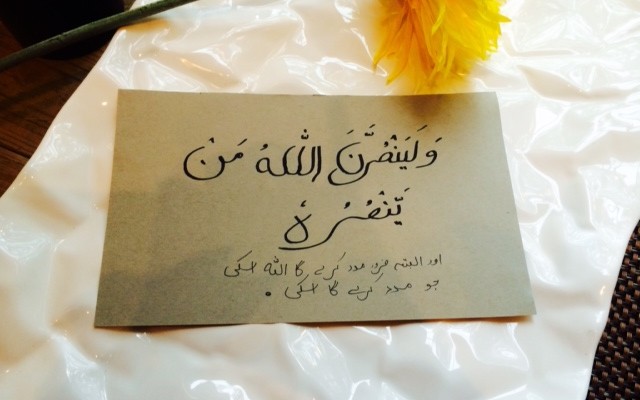 وَلَيَنْصُرَنَّ اللّٰهُ مَنْ
يَّنْصُرُهٗ
اور البتہ ضرور مدد کرے گا اللّٰہ اسکی
جو مدد کرے گا اسکی .